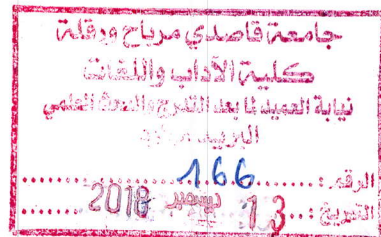 جامعة قاصدي مرباح ورقلة
كلية الآداب واللغات
نيابة العميد لما بعد التدرج والبحث العلمي
البريد
الرقم: 166
التاريخ: 13 ديسمبر 2018